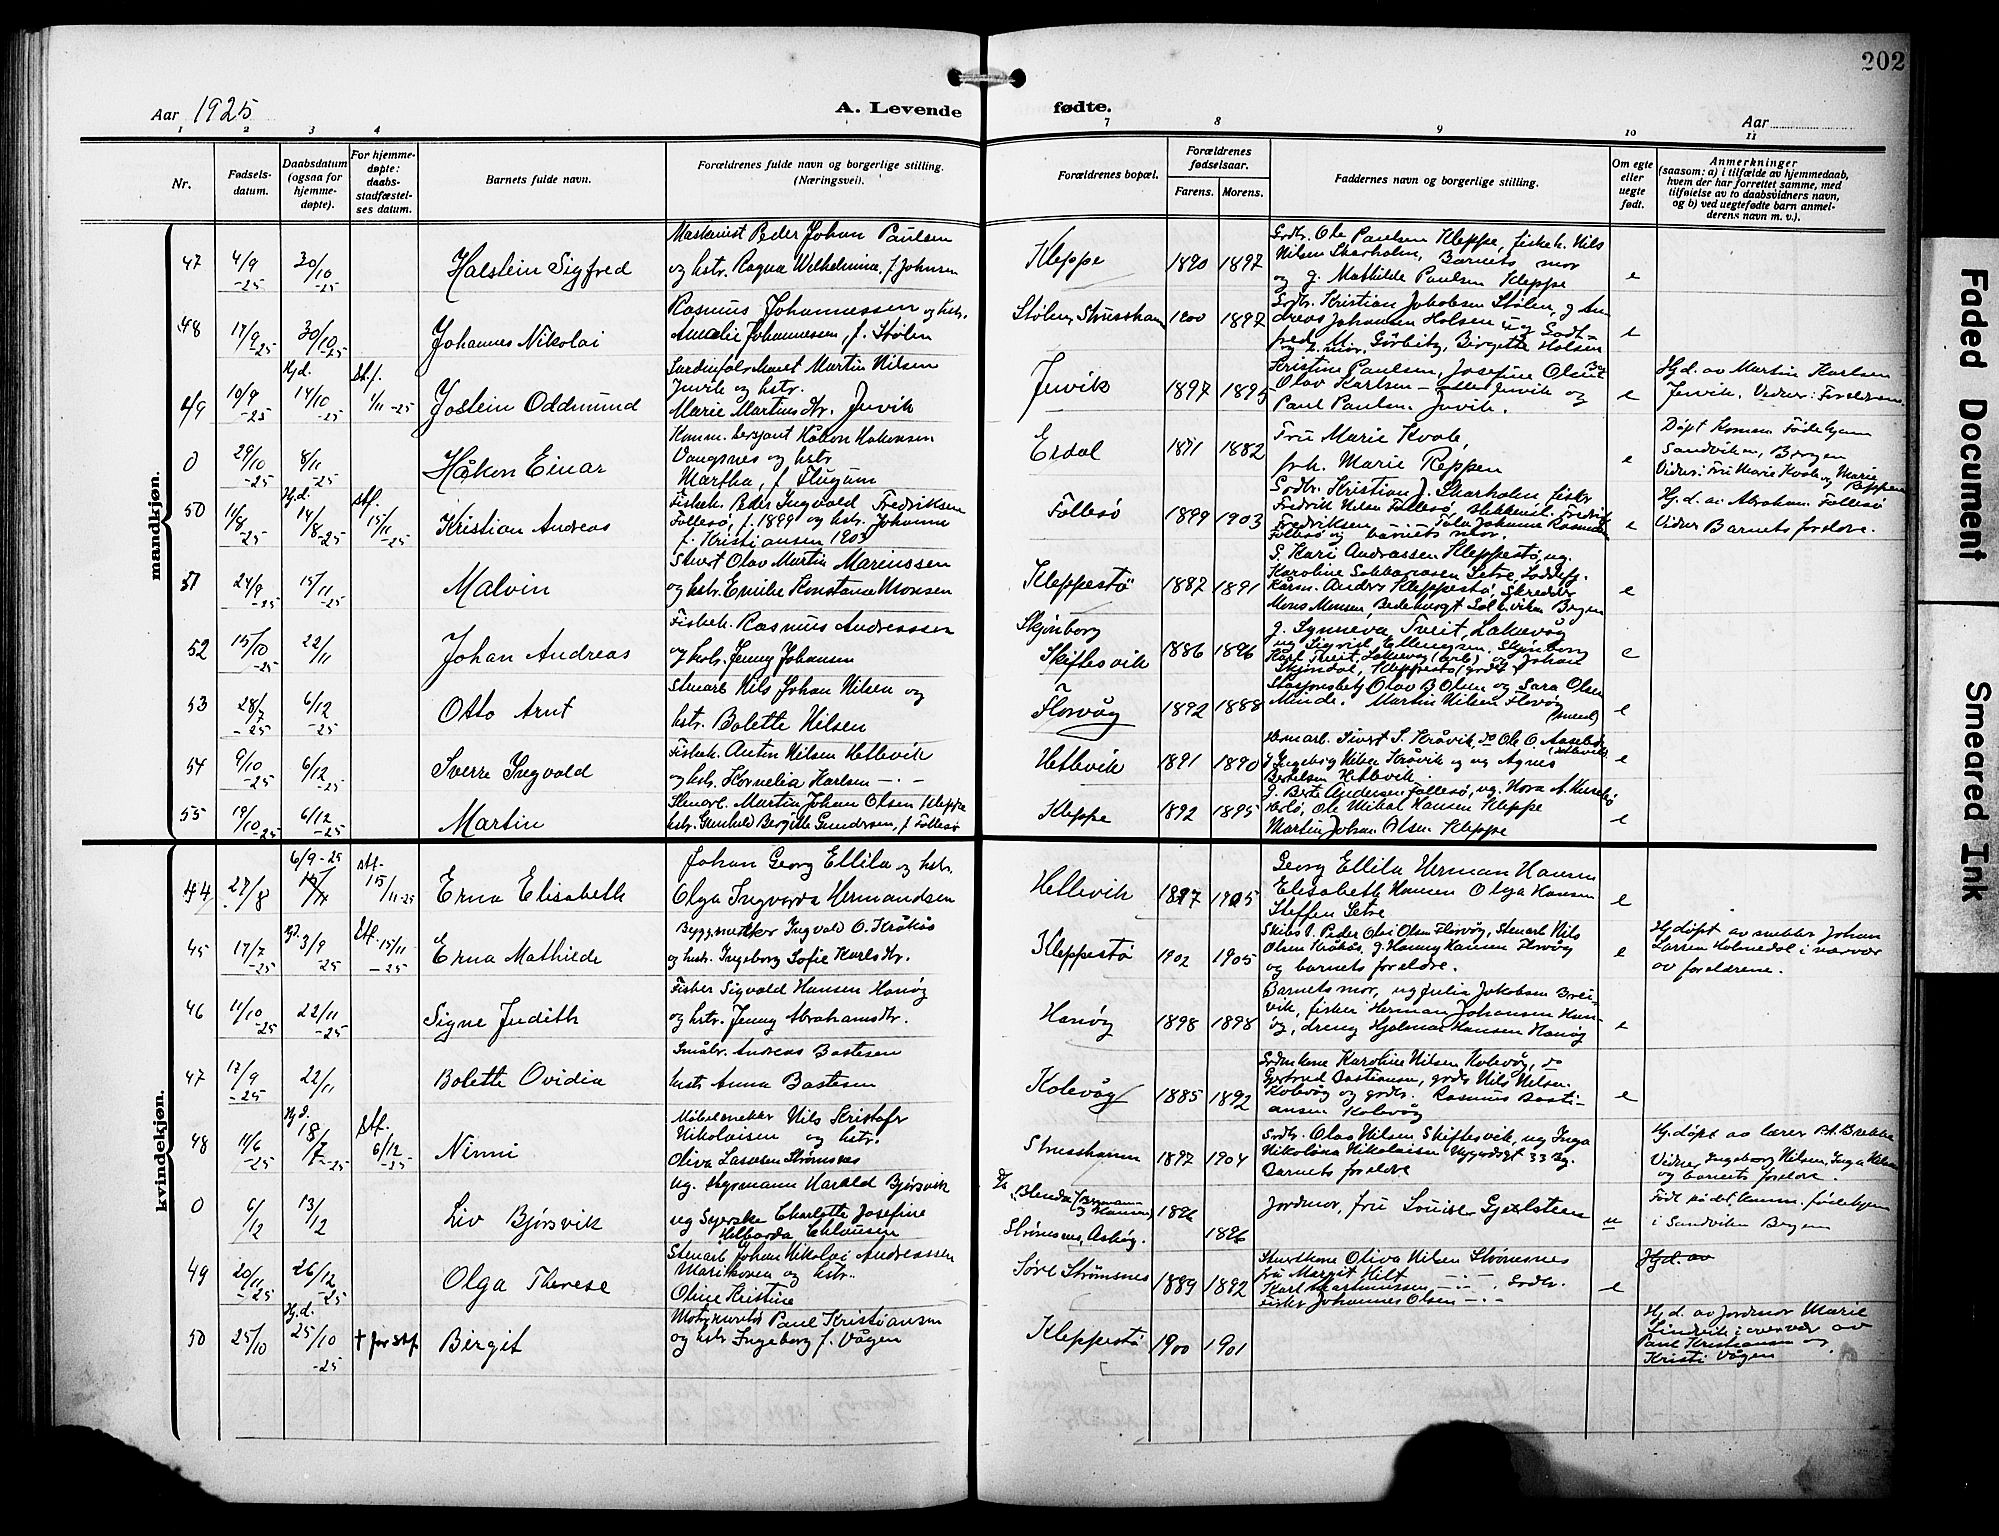 202
Aar 1925
A. Levende
fødte.
Aar
1 2 3 4 7 8 9 10 11
Nr.
Fødsels-
datum.
Daabsdatum
(ogsaa for
hjemme-
døpte).
For hjemme-
døpte:
daabs-
stadfæstel-
ses datum.
Barnets fulde navn.
Forældrenes fulde navn og borgerlige stilling.
(Næringsvei).
Forældrenes bopæl.
Forældrenes
fødselsaar.
Farens. Morens.
Faddernes navn og borgerlige stilling.
Om egte
eller
uegte
født.
Anmerkninger
(saasom: a) i tilfælde av hjemmedaab,
hvem der har forrettet samme, med
tilføielse av to daabsvidners navn,
og b) ved uegtefødte barn anmel-
derens navn m. v.).
mandkjøn.
47 4/9 -25 30/10 -25 Halstein Sigfred
Maskinist Peder Johan Paulsen
og hstr. Ragna Wilhelmine, f Johnsen
Kleppe 1890 1897
Godtr. Ole Paulsen Kleppe, fiskeh. Nils
Nilsen Skarholm, Barnets mor
og g. Mathilde Paulsen Kleppe
e
48 17/9 -25 30/10 -25 Johannes Nikolai
Rasmus Johannessen og hstr.
Amalie Johannessen, f. Stølen
Stølen, Strusshamn 1900 1897
Godtr. Kristian Jakobsen Stølen, g An
dreas Johansen Holsen
e
49 10/9 -25 Hj.d. 14/10 -25 Stf. 1/11 -25 Jostein Oddmund
Martin Nilsen
Juvik og hstr.
Marie Martinsdtr. Juvik
Juvik 1897 1895
Kristine Paulsen, Josefine Olsen
Olav Karlsen - alle Juvik og
Paul Paulsen. Juvik.
e
Hj.d. av Martin Karlsen
Juvik. Vidner: Foreldrene.
0 29/10 -25 8/11 -25 Håkon Einar
Komm. sersjant Håkon Hakonsen
Vangsnes og hstr
Martha, f. Flugum
Erdal 1871 1882
Fru Marie Kvale,
frk. Marie Reppen
e
Døpt Komm Fødehjem
Sandviken, Bergen
Vidner: Fru Marie Kvale og Marie
Reppen
50 11/8 -25 Hj.d. 14/8 -25 stf. 15/11 -25 Kristian Andreas
Fiskeh. Peder Ingvald Fredriksen
Follesø, f. 1899 og hstr. Johanne
f. Kristiansen 1903
Follesø 1899 1903
Godtr. Kristian J. Skarholm, fisker
Fredrik Nilsen Follesø,
Follesø og barnets mor.
e
Hj.d. av Abraham Follesø
Vidner Barnets foreldre.
51 24/9 -25 15/11 -25 Malvin
Stuert Olav Martin Mariussen
og hstr. Emilie Konstanse Monsen
Kleppestø 1887 1891
S. Kari Andreassen Kleppestø, ug.
Anders Kleppestø, Skredder
Mons Monsen,
e
52 15/10 -25 22/11 Johan Andreas
Fiskeh. Rasmus Andreassen
og hstr. Jenny Johansen
Skjønborg
Skiftesvik 1886 1896
g. Synneva Tveit, Laksevåg
ug Sigrid Ellingsen. Skjønborg
Karl Tveit, Laksevåg (arb) og Johan
Skjøndal, Kleppestø
e
53 28/7 -25 6/12 -25 Otto Arnt
Stenarb Nils Johan Nilsen og
hstr. Bolette Nilsen
Florvåg 1892 1888
Stasjonsbetj Olav B Olsen og Sara Olsen
Minde. Martin Nilsen Florvåg
e
54 9/10 -25 6/12 -25 Sverre Ingvald
Fiskeh. Antin Nilsen Hetlevik
og hstr. Kornelia Karlsen -"-
Hetlevik 1891 1890
Sivert S. Kråvik, do Ole O. Aasebø
g Ingeborg Nilsen Kråvik og ug Agnes
Bertelsen Hetlevik.
e
55 19/10 -25 6/12 -25 Martin
Stenarb. Martin Johan Olsen Kleppe
hstr. Gunhild Bergitte Gundersen, f Follesø
Kleppe 1892 1895
g. Berte Andersen Follesø, ug. Nora A.
Ole Mikal Hansen Kleppe
Martin Johan Olsen Kleppe
e
kvindekjøn.
44 27/8 6/9 -25 stf. 15/11 -25 Erna Elisabeth
Johan Georg Ellila og hstr.
Olga Ingvarda Hermandsen
Hetlevik 1897 1905
Georg Ellila Herman Hansen
Elisabeth Hansen Olga Hansen
Steffen Setre
e
45 17/7 -25 Hj. 3/9 -25 Stf. 15/11 -25 Erna Mathilde
Byggmester Ingvald O. Kråkås
og hstr. Ingeborg Sofie Karlsdtr.
Kleppestø 1902 1905
Peder Olai Olsen Florvåg, Stenarb Nils
Olsen Kråkås, g. Hanny Hansen Florvåg
og barnets foreldre.
e
Hj.døpt av snekker Johan
Larsen Holmedal i nærvær
av foreldrene.
46 11/10 -25 22/11 -25 Signe Judith
Fisker Sigvald Hansen Hanøy
og hstr. Jenny Abrahamsdtr.
Hanøy 1898 1898
Barnets mor, ug Julia Jakobsen Brei-
vik, fisker Herman Johansen Han-
øy, dreng Hjalmar Hansen Hanøy
e
47 17/9 -25 22/11 Bolette Ovidia
Småbr. Andreas Bastesen
hstr Anna Bastesen
Kolevåg 1885 1892
Grdmkone Karoline Nilsen Kolevåg, do
Gjertrud Bastiansen, grdb Nils Nilsen
Kolevåg og grdbr. Rasmus Basti-
ansen Kolevåg
e
48 11/6 -25 Hj.d. 18/7 -25 Stf. 6/12 -25 Ninni
Møbelsnekker Nils Kristofer
Nikolaisen og hstr.
Oliva Larsen Strømsnes
Strusshamn 1897 1904
Grdbr. Olav Nilsen Skiftesvik, ug Inga
Nikolina Nikolaisen Nygårdsgt 33 Bg.
Barnets foreldre
Hj.døpt av lærer Brekke
Vidner Ingeborg Nilsen, Inga Nilsen
og barnets foreldre.
0 6/12 13/12 Liv Bjørsvik
Ug. Styrmann Harald Bjørsvik
ug Syerske Charlotte Josefine
Strømsnes, Askøy. 1896 1896
Jordmor, fru Louise Gjertsen
u
Født på det komm. fødehjem
i Sandviken Bergen
49 20/11 -25 26/12 -25 Olga Therese
Stenarb Johan Nikolai Andreassen
Marikoven og hstr.
Oline Kristine
Søre Strømsnes 1889 1892
Oliva Nilsen Strømsnes
fru Margit Hilt -"-
Karl Rasmussen -"- Grdbr.
Fisker Johannes Olsen -"-
e
Hj.d. av
50 25/10 Hj.d. 25/10 -25 † før stf. Birgit
Paul Kristiansen
og hstr Ingeborg f. Vågen
Kleppestø 1900 1901
Hj.d. av Jordmor Marie
Lindvik i overvær av
Paul Kristiansen og
Kristi Vågen
Faded Document
Smeared Ink